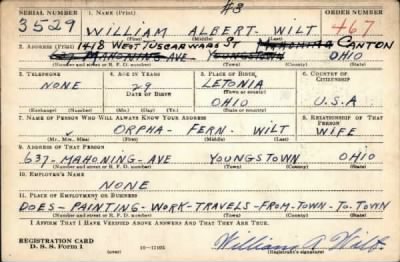 #3
SERIAL NUMBER 1. NAME (Print) ORDER NUMBER
3529 WILLIAM ALBERT WILT 467
(First) (Middle) (Last)
1418 WEST TUSCARAWAS ST MAHONING CANTON
2. ADDRESS (Print)
637 MAHONING AVE YOUNGSTOWN OHIO
(Number and street or R. F. D. number) (Town) (County) (State)
3. TELEPHONE 4. AGE IN YEARS 5. PLACE OF BIRTH 6. COUNTRY OF CITIZENSHIP
NONE 29 LETONIA
DATE OF BIRTH (Town or county)
OHIO U.S.A
(Exchange) (Number) (Mo.) (Day) (Yr.) (State or country)
7. NAME OF PERSON WHO WILL ALWAYS KNOW YOUR ADDRESS 8. RELATIONSHIP OF THAT PERSON
ORPHA - FERN - WILT WIFE
(Mr., Mrs., Miss) (First) (Middle) (Last)
9. ADDRESS OF THAT PERSON
637 - MAHONING - AVE YOUNGSTOWN OHIO
(Number and street or R. F. D. number) (Town) (County) (State)
10. EMPLOYER'S NAME
NONE
11. PLACE OF EMPLOYMENT OR BUSINESS
DOES - PAINTING - WORK - TRAVELS - FROM - TOWN - TO - TOWN
(Number and street or R. F. D. number) (Town) (County) (State)
I AFFIRM THAT I HAVE VERIFIED ABOVE ANSWERS AND THAT THEY ARE TRUE.
REGISTRATION CARD
D. S. S. Form 1 (over) 16—17105 William A Wilt
(Registrant's signature)